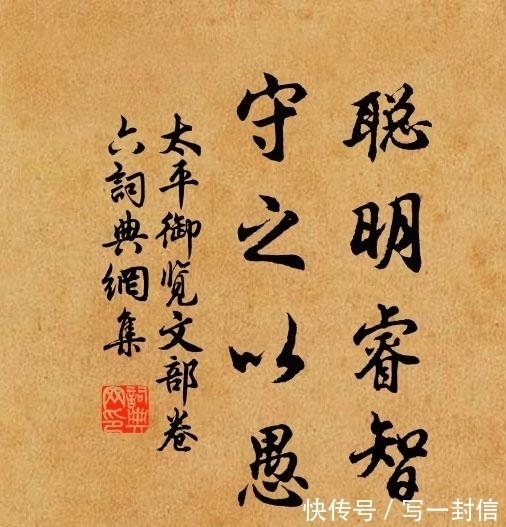 聪明睿智
守之以愚
太平御览文部卷
六词典網集
快传号/写一封信